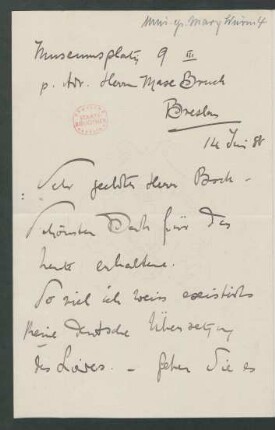 Museumsplatz 9 III
p. Adr. Herrn Max Bruch
Breslau
14 Juni 88
Sehr geehrter Herr Bock -
Schönsten Dank für das
heute erhaltene.
So viel ich weiss existirt
keine deutsche Übersetzung
des Liedes. - Geben Sie es